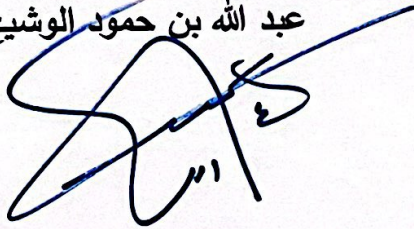 عبد الله بن حمود الوشيع